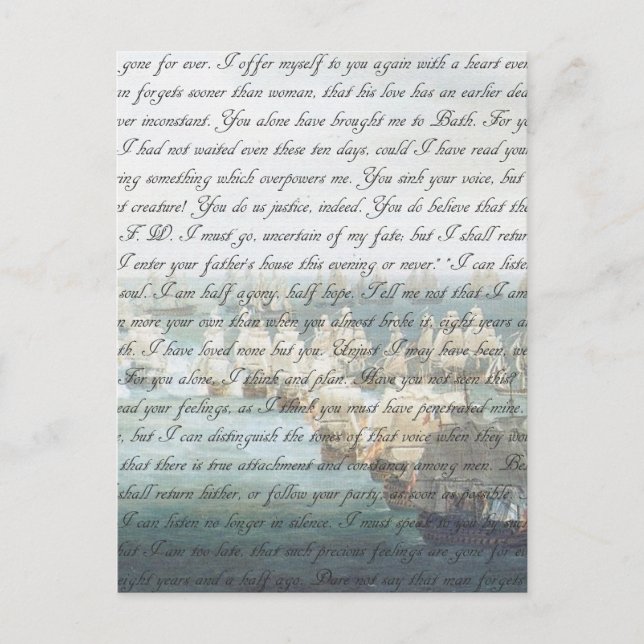 gone for ever. I offer myself to you again with a heart even
an forgets sooner than woman, that his love has an earlier dea
ver inconstant. You alone have brought me to Bath. For yo
I had not waited even these ten days, could I have read your
ring something which overpowers me. You sink your voice, but
nt creature! You do us justice, indeed. You do believe that the
F. W. I must go, uncertain of my fate; but I shall retur
I enter your father's house this evening or never." "I can listen
soul. I am half agony, half hope. Tell me not that I am
n more your own than when you almost broke it, eight years a
th. I have loved none but you. Unjust I may have been, we
For you alone, I think and plan. Have you not seen this?
ead your feelings, as I think you must have penetrated mine.
e, but I can distinguish the tones of that voice when they wou
that there is true attachment and constancy among men. Bel
shall return hither, or follow your party, as soon as possible.
I can listen no longer in silence. I must speak to you by such
hat I am too late, that such precious feelings are gone for ev
eight years and a half ago. Dare not say that man forgets